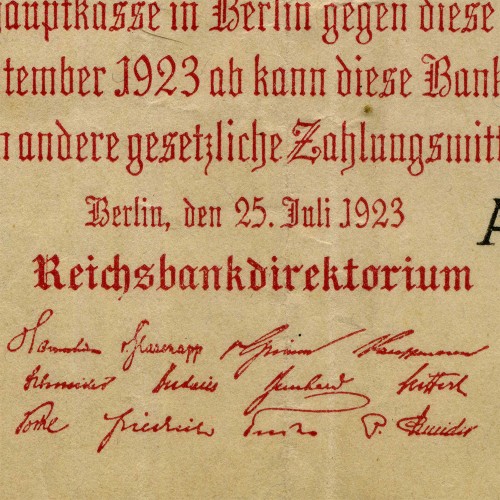 hauptkasse in Berlin gegen diese
tember 1923 ab kann diese Bank
n andere gesetzliche Zahlungsmitt
Berlin, den 25. Juli 1923
A
Reichsbankdirektorium
v Glasenapp v Grimm Kauffmann
Schneider Budczies Bernhard Seiffert
Vocke Friedrich Fuchs P. Schneider